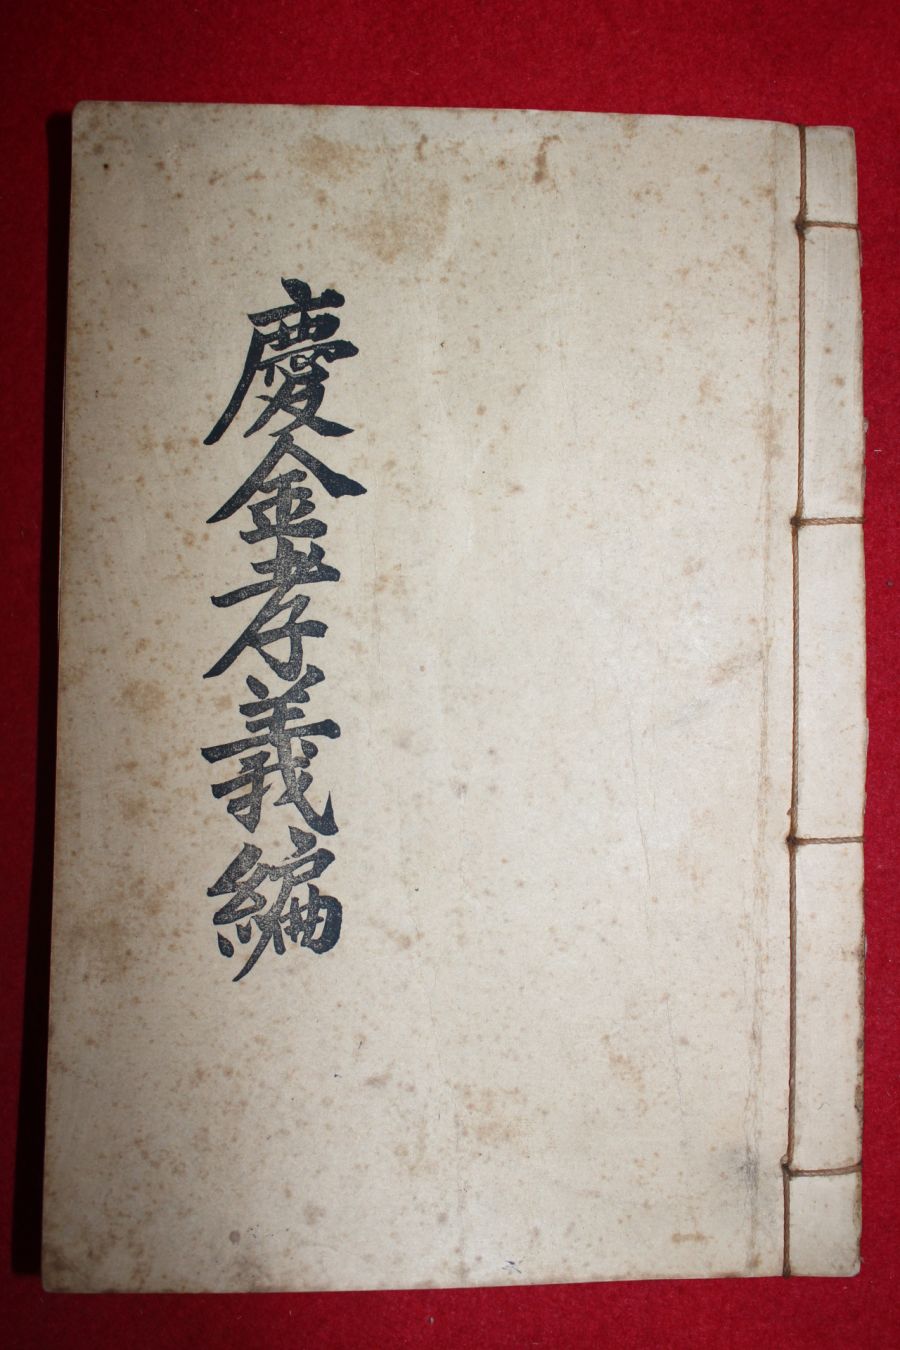 慶金孝義編